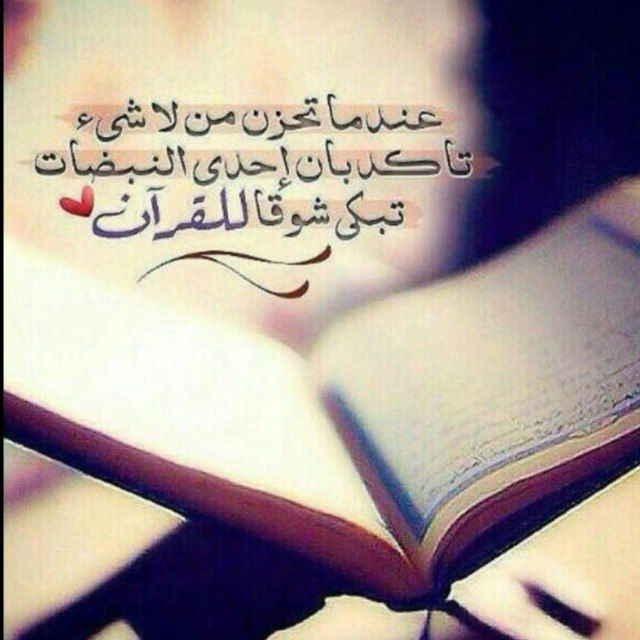 عندما تحزن من لا شيء
تاكد بان إحدى النبضات
تبكي شوقا للقرآن